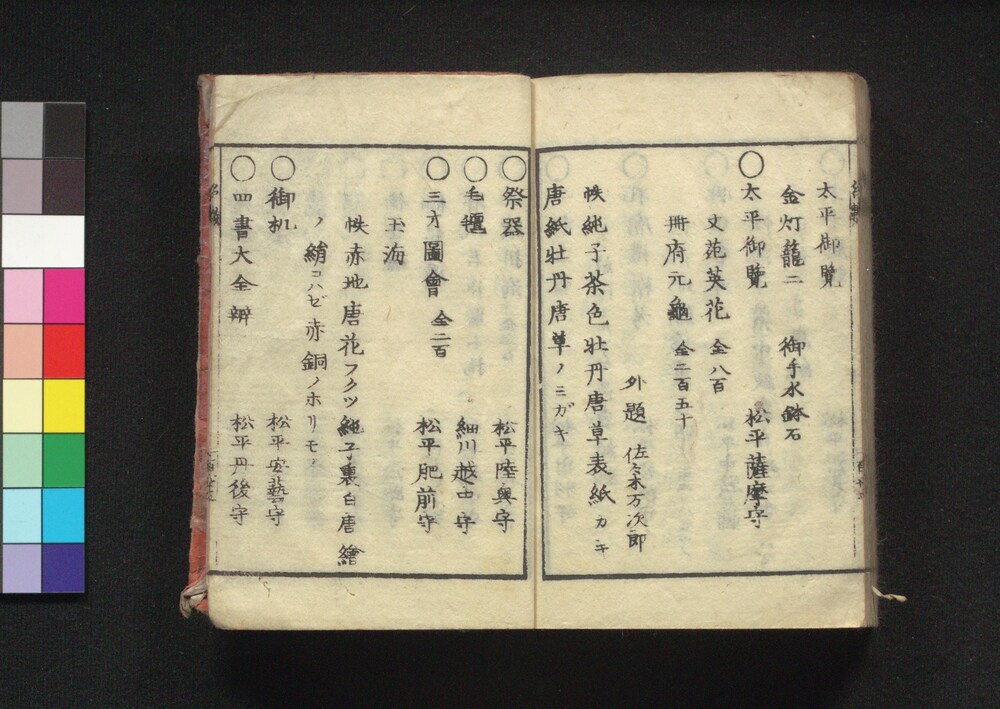 太平御覧
金灯籠二　御手水鉢石
○太平御覧　松平薩摩守
文苑英花　全八百
冊府元龜　全二百五十
外題　佐々木万次郎
帙純子茶色牡丹唐草表紙カキ
唐紙牡丹唐草ノミガキ
○祭器　松平陸奥守
○毛氈　細川越中守
○三才圖會　全二百　松平肥前守
玉海
帙赤地唐花フクツ純子裏白唐繪
ノ絹コハゼ赤銅ノホリモノ
○御机　松平安藝守
○四書大全辨　松平丹後守